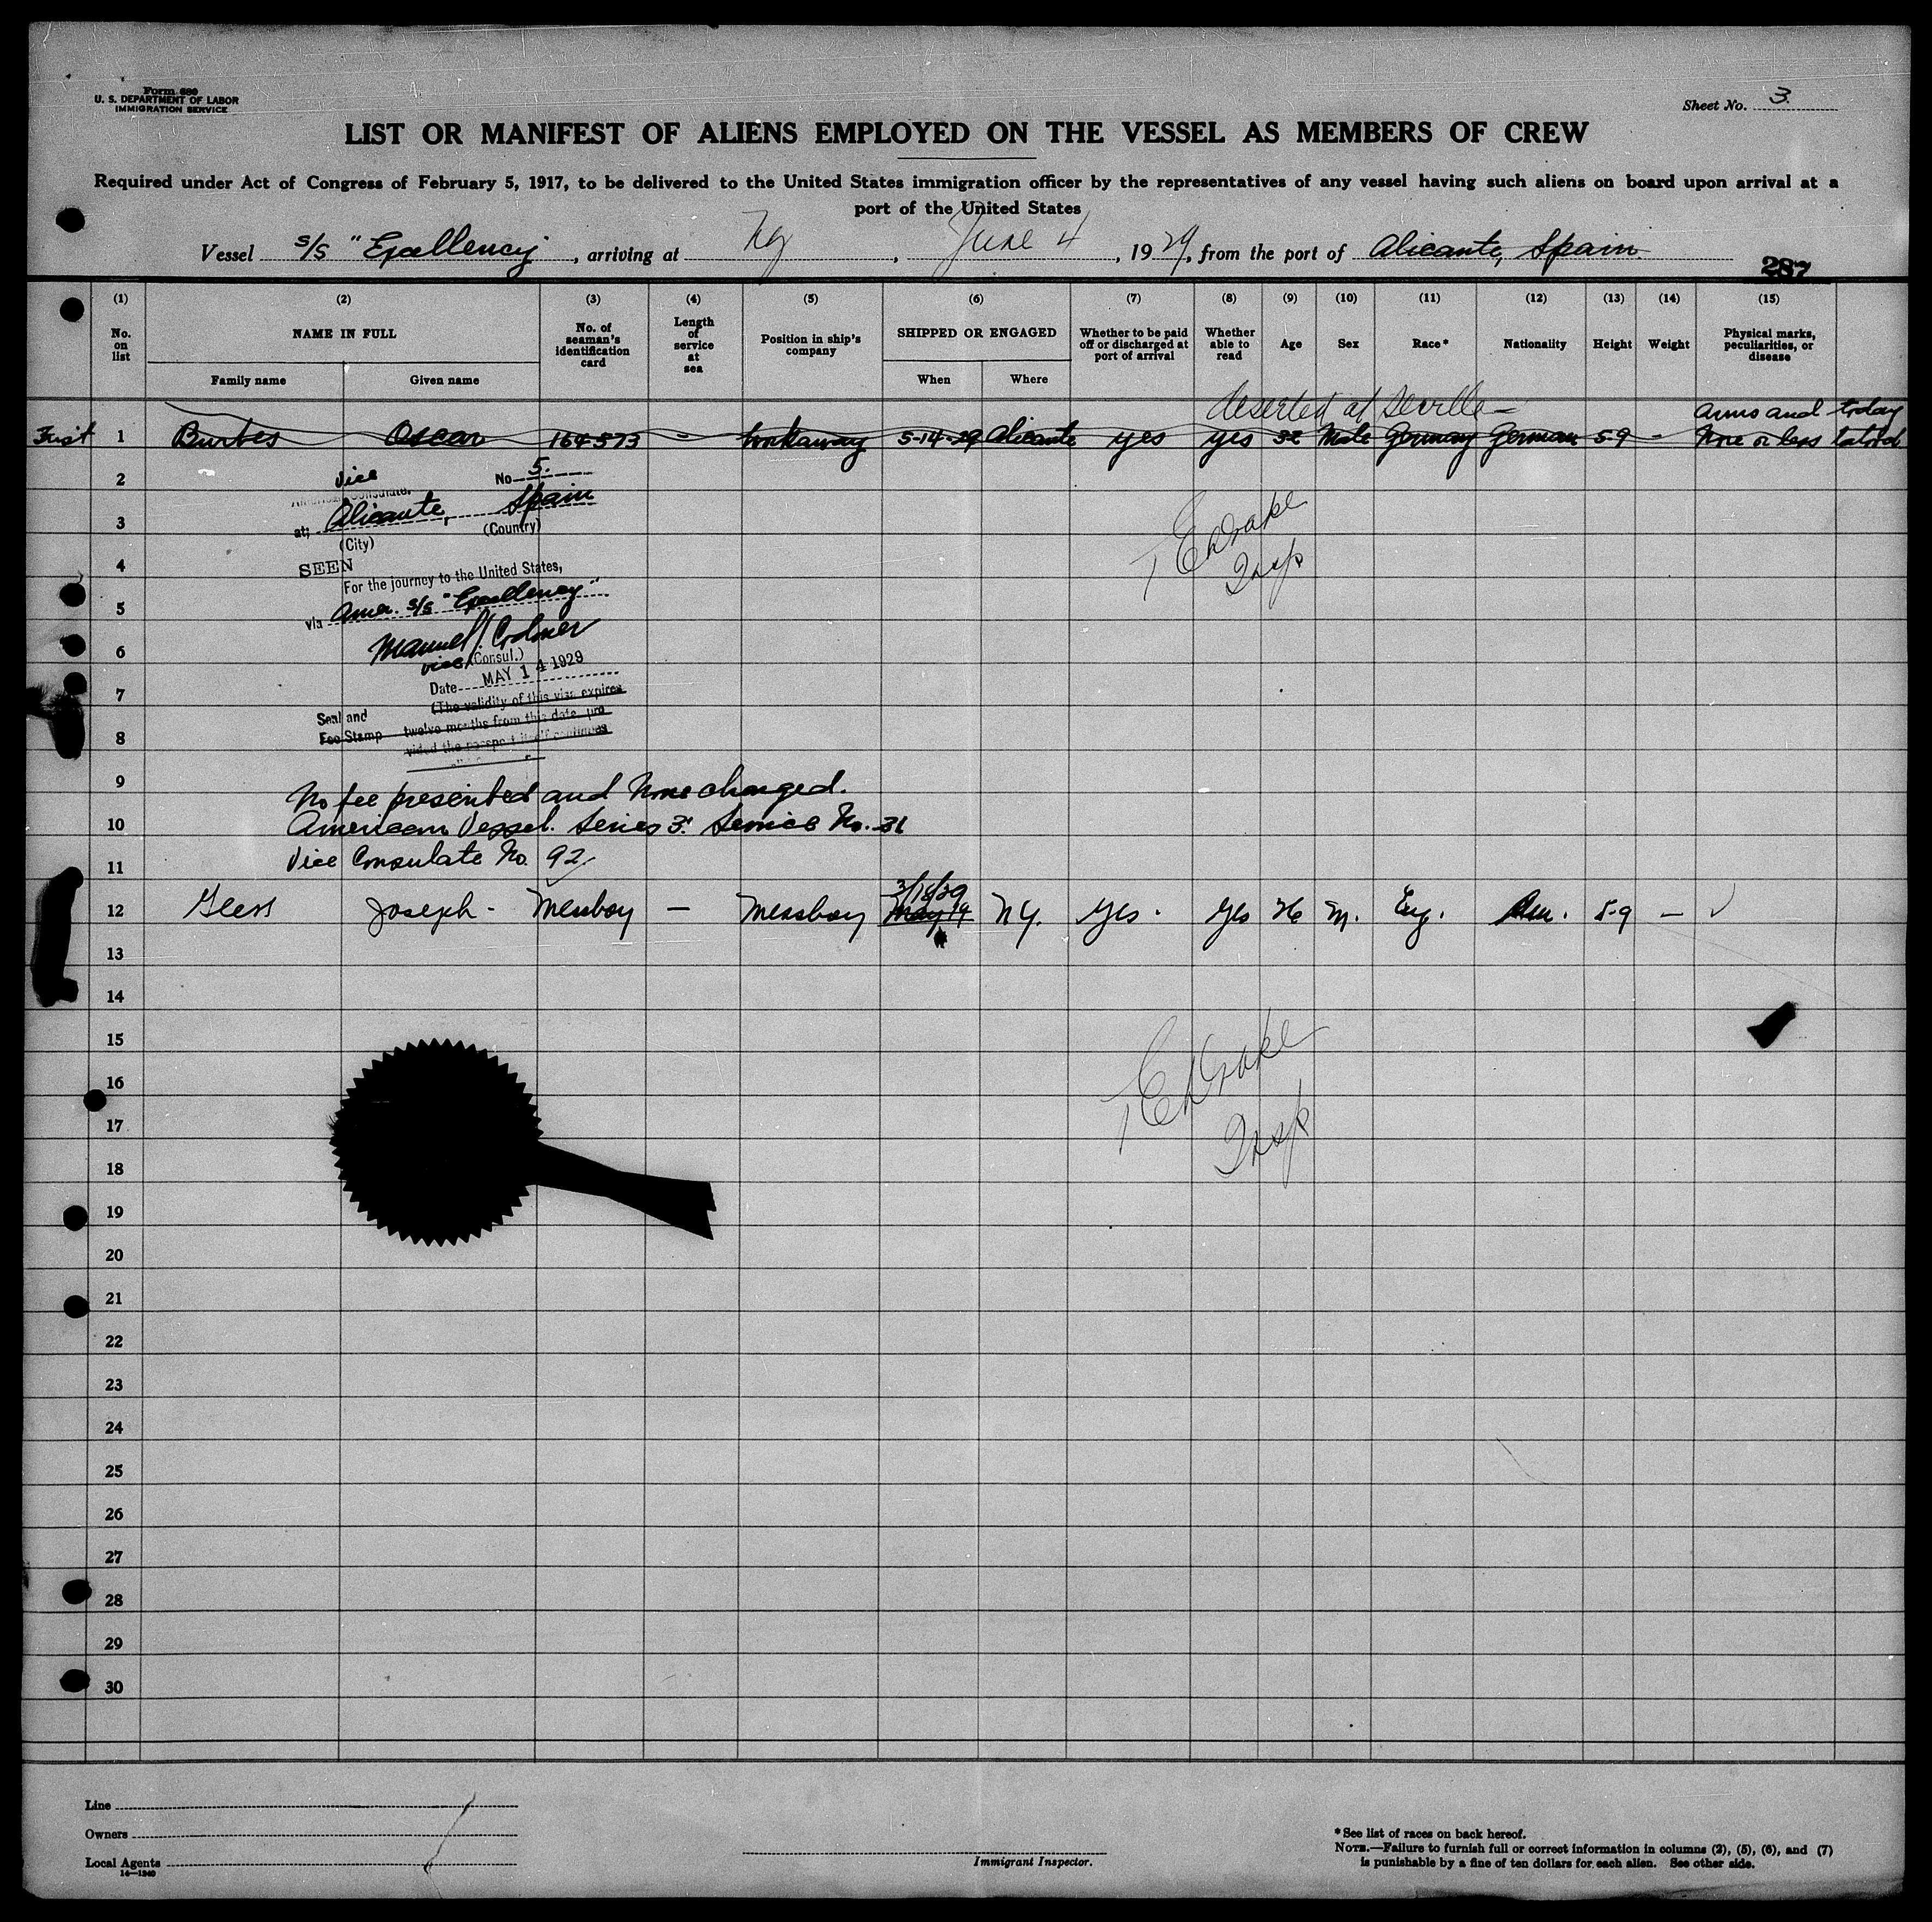 Form 680
U. S. DEPARTMENT OF LABOR
IMMIGRATION SERVICE
Sheet No. 3.
LIST OR MANIFEST OF ALIENS EMPLOYED ON THE VESSEL AS MEMBERS OF CREW
Required under Act of Congress of February 5, 1917, to be delivered to the United States immigration officer by the representatives of any vessel having such aliens on board upon arrival at a
port of the United States
Vessel s/s "Excellency", arriving at Ny, June 4, 1929, from the port of Alicante, Spain
287
(1) (2) (3) (4) (5) (6) (7) (8) (9) (10) (11) (12) (13) (14) (15)
No. on list NAME IN FULL No. of seaman's identification card Length of service at sea Position in ship's company SHIPPED OR ENGAGED Whether to be paid off or discharged at port of arrival Whether able to read Age Sex Race* Nationality Height Weight Physical marks, peculiarities, or disease
Family name Given name When Where
deserted at Seville - arms and
First 1 Burbes Oscar 164573 - Workaway 5-14-29 Alicante yes yes 32 Male Germany German 5-9 - More or less
2 Vice No 5.
American Consulate,
3 at; Alicante, Spain
(City) (Country)
T E Drake
Insp
4 SEEN
For the journey to the United States,
5 via Amer. s/s "Excellency"
6 Manuel
vice (Consul.)
7 Date MAY 14 1929
(The validity of this visa expires
Seal and twelve months from this date, pro
8 Fee Stamp vided the passport itself continues
9 No fee presented and None charged.
10 American Vessel. Series 3. Service No. 31
11 Vice Consulate No. 92.
3/16/29
12 Joseph - Messboy - Messboy May 14 N.Y. Yes. Yes 26 M. Eng. 5-9 - ✓
13
14
15
16 T E Drake
17 Insp
18
19
20
21
22
23
24
25
26
27
28
29
30
Line
Owners
Local Agents
14—1240
Immigrant Inspector.
* See list of races on back hereof.
NOTE.—Failure to furnish full or correct information in columns (2), (5), (6), and (7)
is punishable by a fine of ten dollars for each alien. See other side.